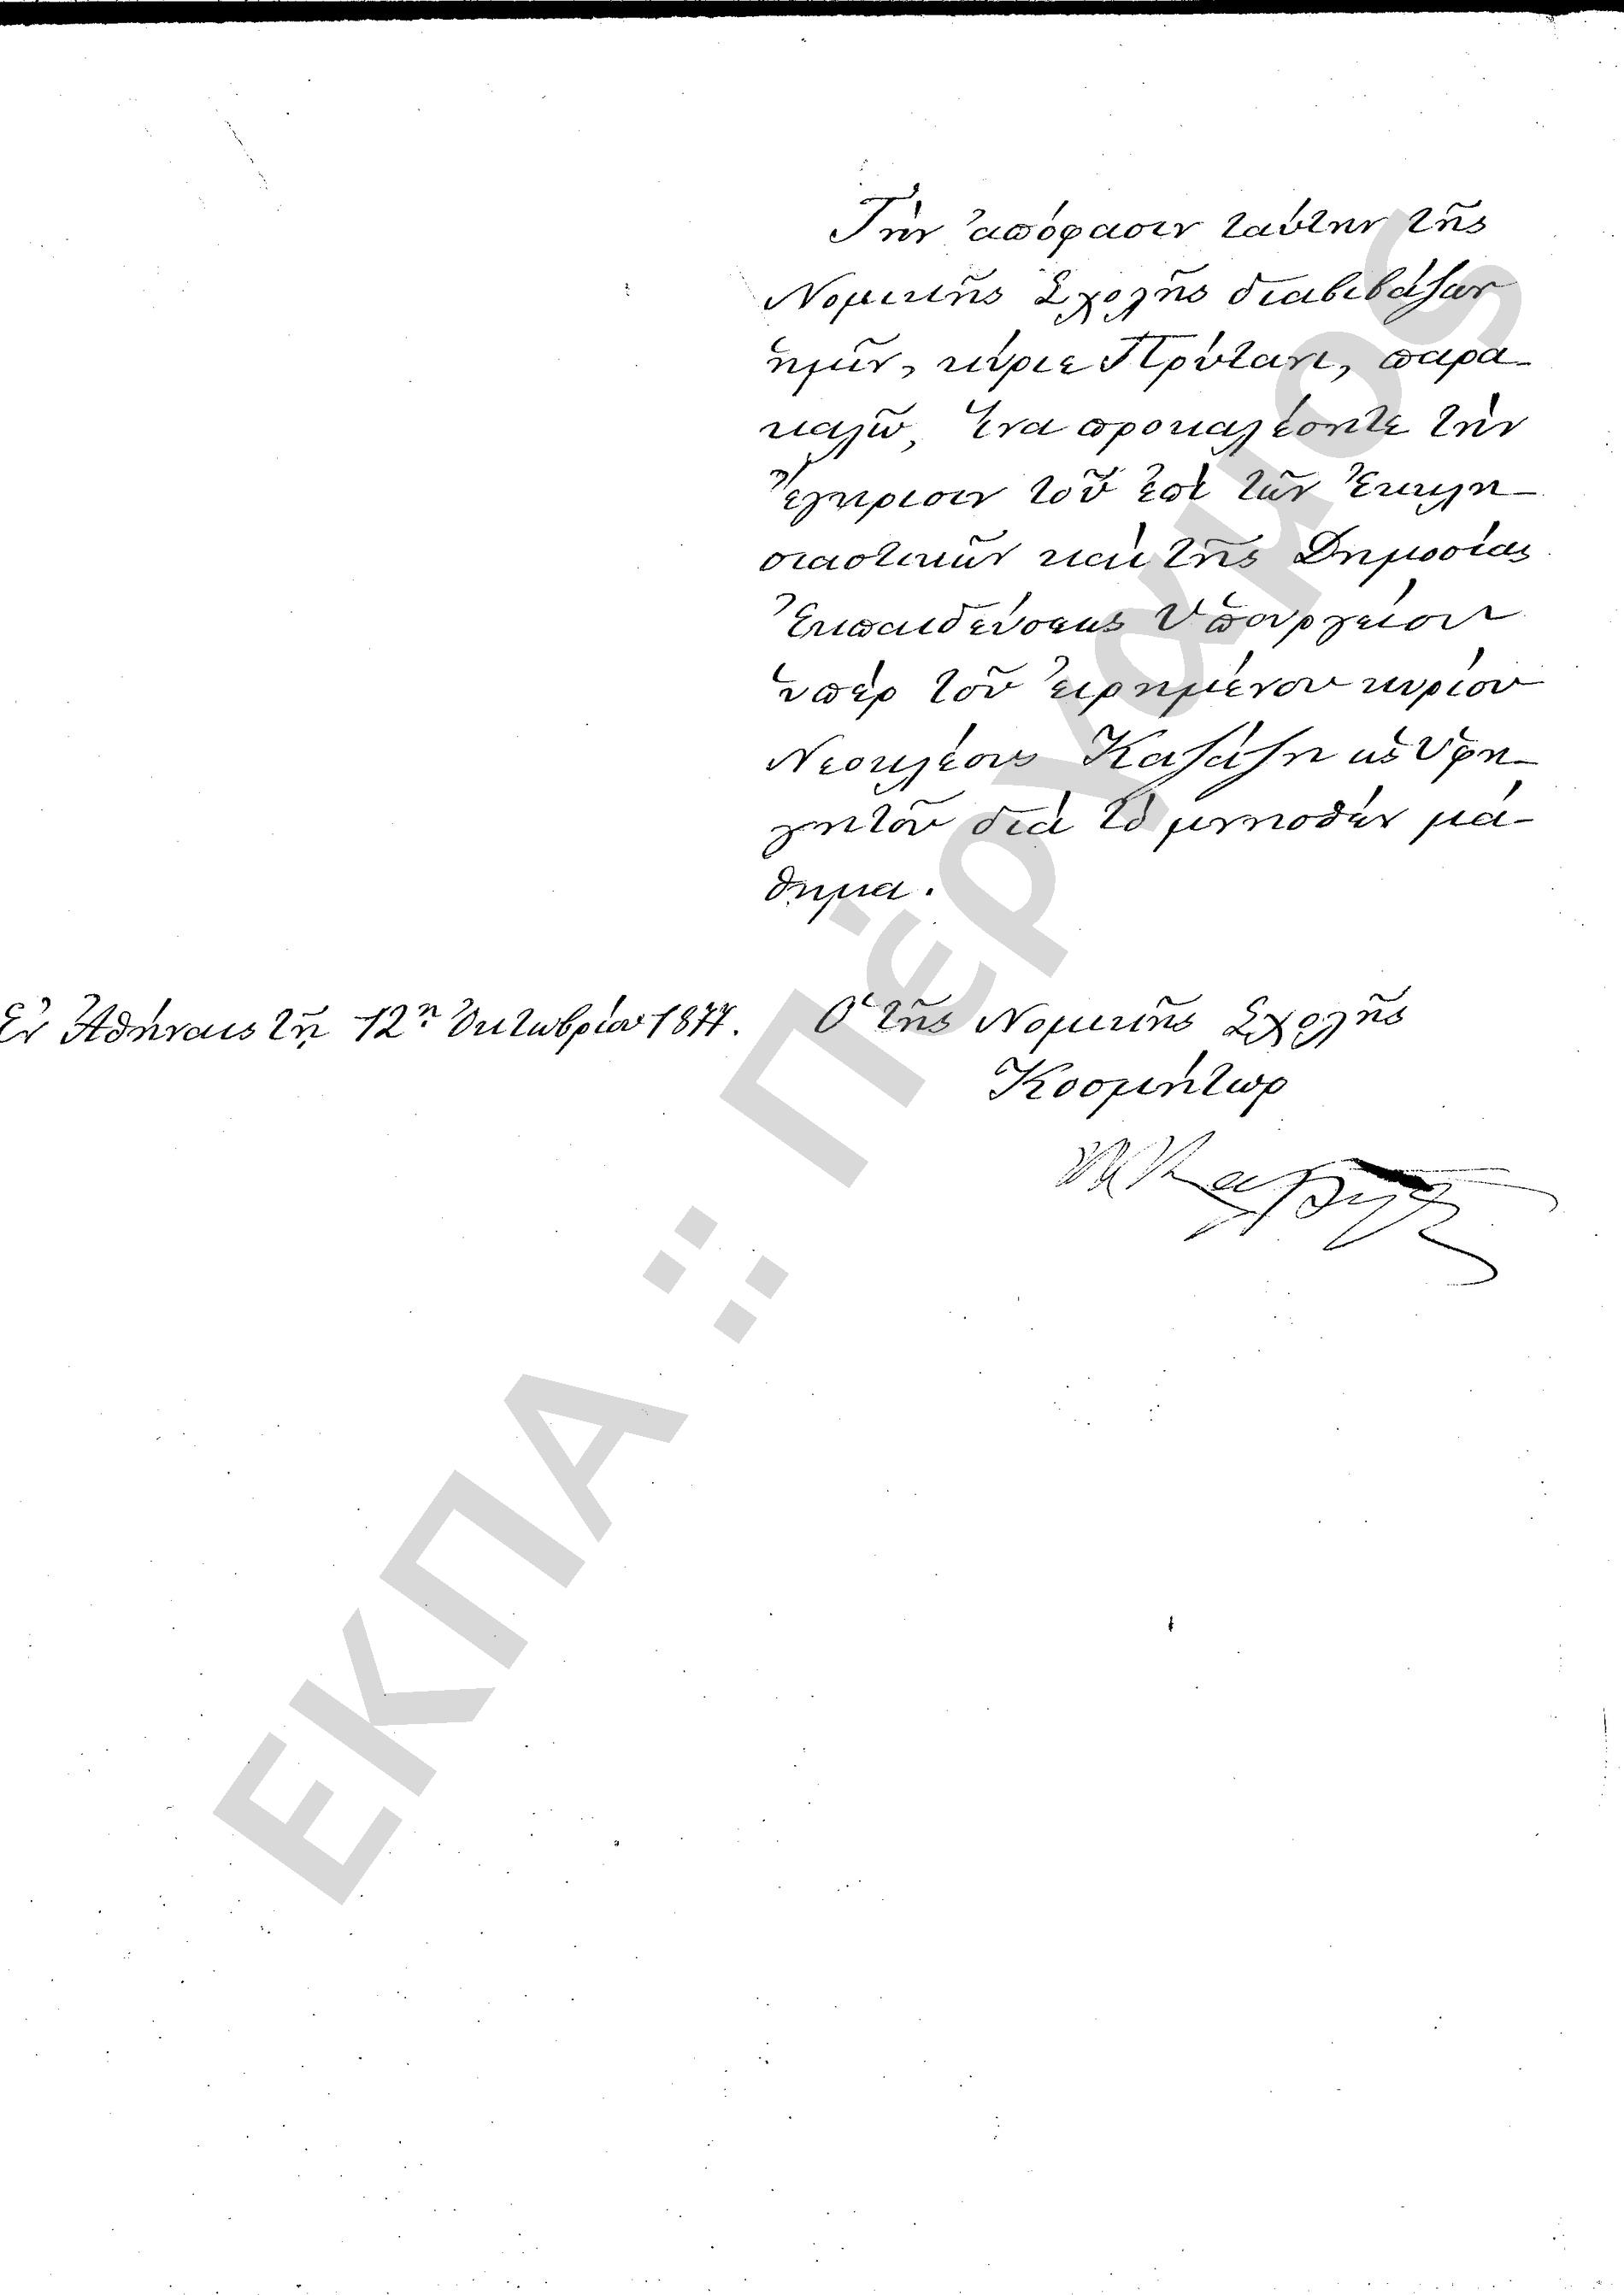 Τὴν ἀπόφασιν ταύτην τῆς
Νομικῆς Σχολῆς διαβιβάζων
ὑμῖν, κύριε Πρύτανι, παρα-
καλῶ, ἵνα προκαλέσητε τὴν
ἔγκρισιν τοῦ ἐπὶ τῶν Ἐκκλη-
σιαστικῶν καὶ τῆς Δημοσίας
Ἐκπαιδεύσεως Ὑπουργείου
ὑπὲρ τοῦ εἰρημένου κυρίου
Νεοκλέους Καζάζη ὡς Ὑφη-
γητοῦ διὰ τὸ μνησθὲν μά-
θημα.
Ἐν Ἀθήναις τῇ 12ῃ Ὀκτωβρίου 1877. Ὁ τῆς Νομικῆς Σχολῆς
Κοσμήτωρ
ΕΚΠΑ :: Πέργαμος